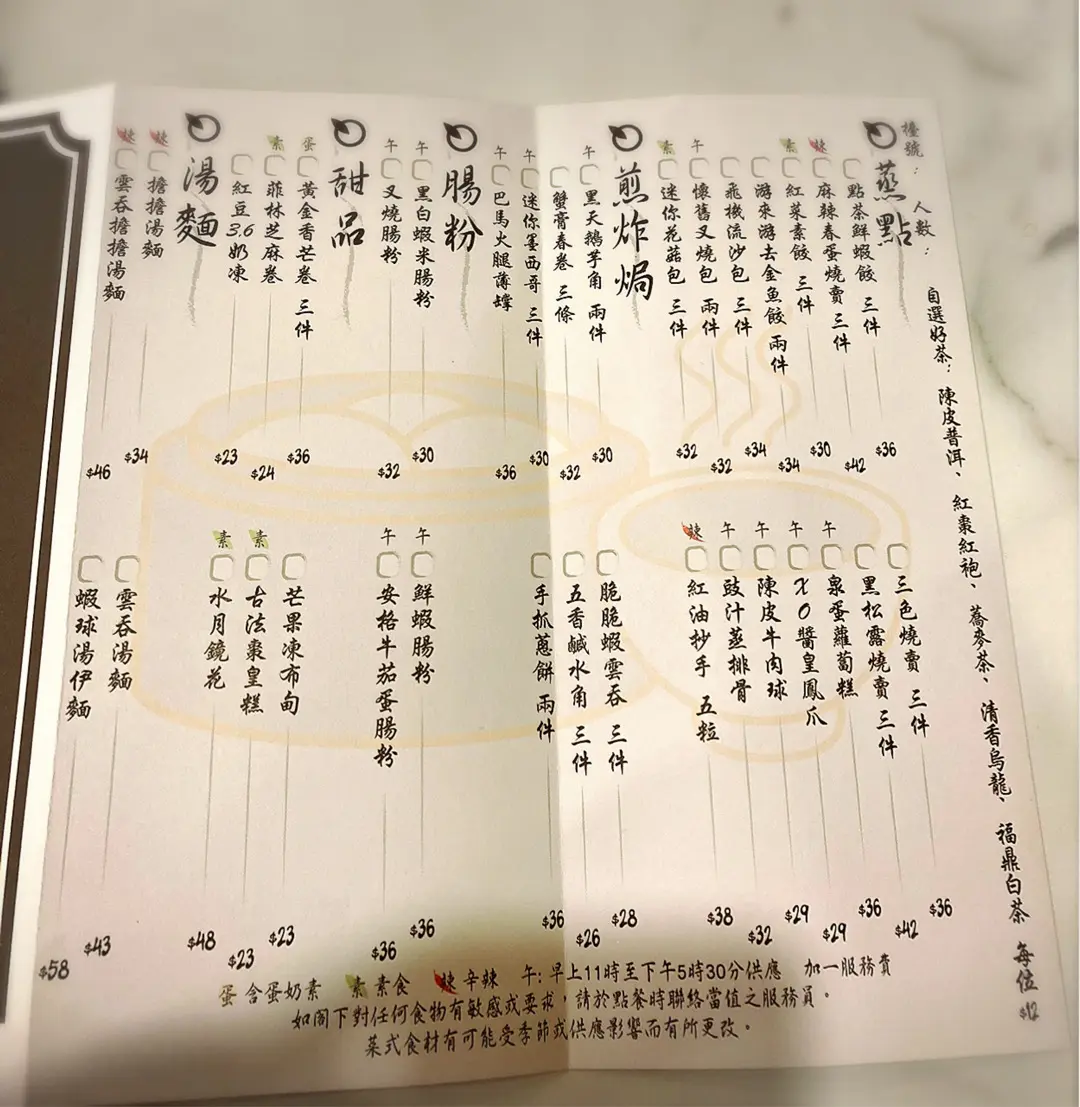 檯號： 人數：
自選好茶： 陳皮普洱、 紅棗紅袍、 蕎麥茶、 清香烏龍、 福鼎白茶 每位 $12
蒸點
點茶鮮蝦餃 三件 $36
辣 麻辣春蛋燒賣 三件 $42
素 紅菜素餃 三件 $30
游來游去金魚餃 兩件 $34
飛機流沙包 三件 $34
午 懷舊叉燒包 兩件 $32
素 迷你花菇包 三件 $32
三色燒賣 三件 $36
黑松露燒賣 三件 $42
午 泉蛋蘿蔔糕 $36
午 XO醬皇鳳爪 $29
午 陳皮牛肉球 $29
午 豉汁蒸排骨 $32
辣 紅油抄手 五粒 $38
煎炸焗
午 黑天鵝芋角 兩件 $30
蟹膏春卷 三條 $32
午 迷你墨西哥 三件 $30
午 巴馬火腿薄罉 $36
脆脆蝦雲吞 三件 $28
五香鹹水角 三件 $26
手抓蔥餅 兩件 $36
腸粉
午 黑白蝦米腸粉 $30
午 叉燒腸粉 $32
午 鮮蝦腸粉 $36
午 安格牛茄蛋腸粉 $36
甜品
蛋 黃金香芒卷 三件 $36
素 菲林芝麻卷 $24
紅豆3.6奶凍 $23
芒果凍布甸 $23
素 古法棗皇糕 $23
素 水月鏡花 $48
湯麵
辣 擔擔湯麵 $34
辣 雲吞擔擔湯麵 $46
雲吞湯麵 $43
蝦球湯伊麵 $58
蛋 含蛋奶素 素 素食 辣 辛辣 午：早上11時至下午5時30分供應 加一服務費
如閣下對任何食物有敏感或要求，請於點餐時聯絡當值之服務員。
菜式食材有可能受季節或供應影響而有所更改。